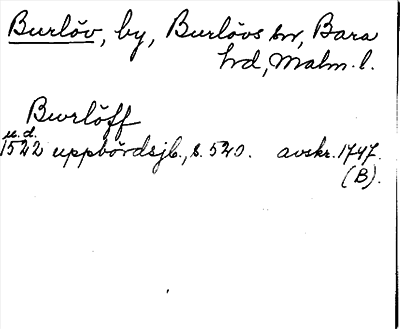 Burlöv, by, Burlövs sn, Bara
hd, Malm. l.
Burlöff
u.d.
1522 uppbördsjb., s. 520. avskr. 1747.
(B).